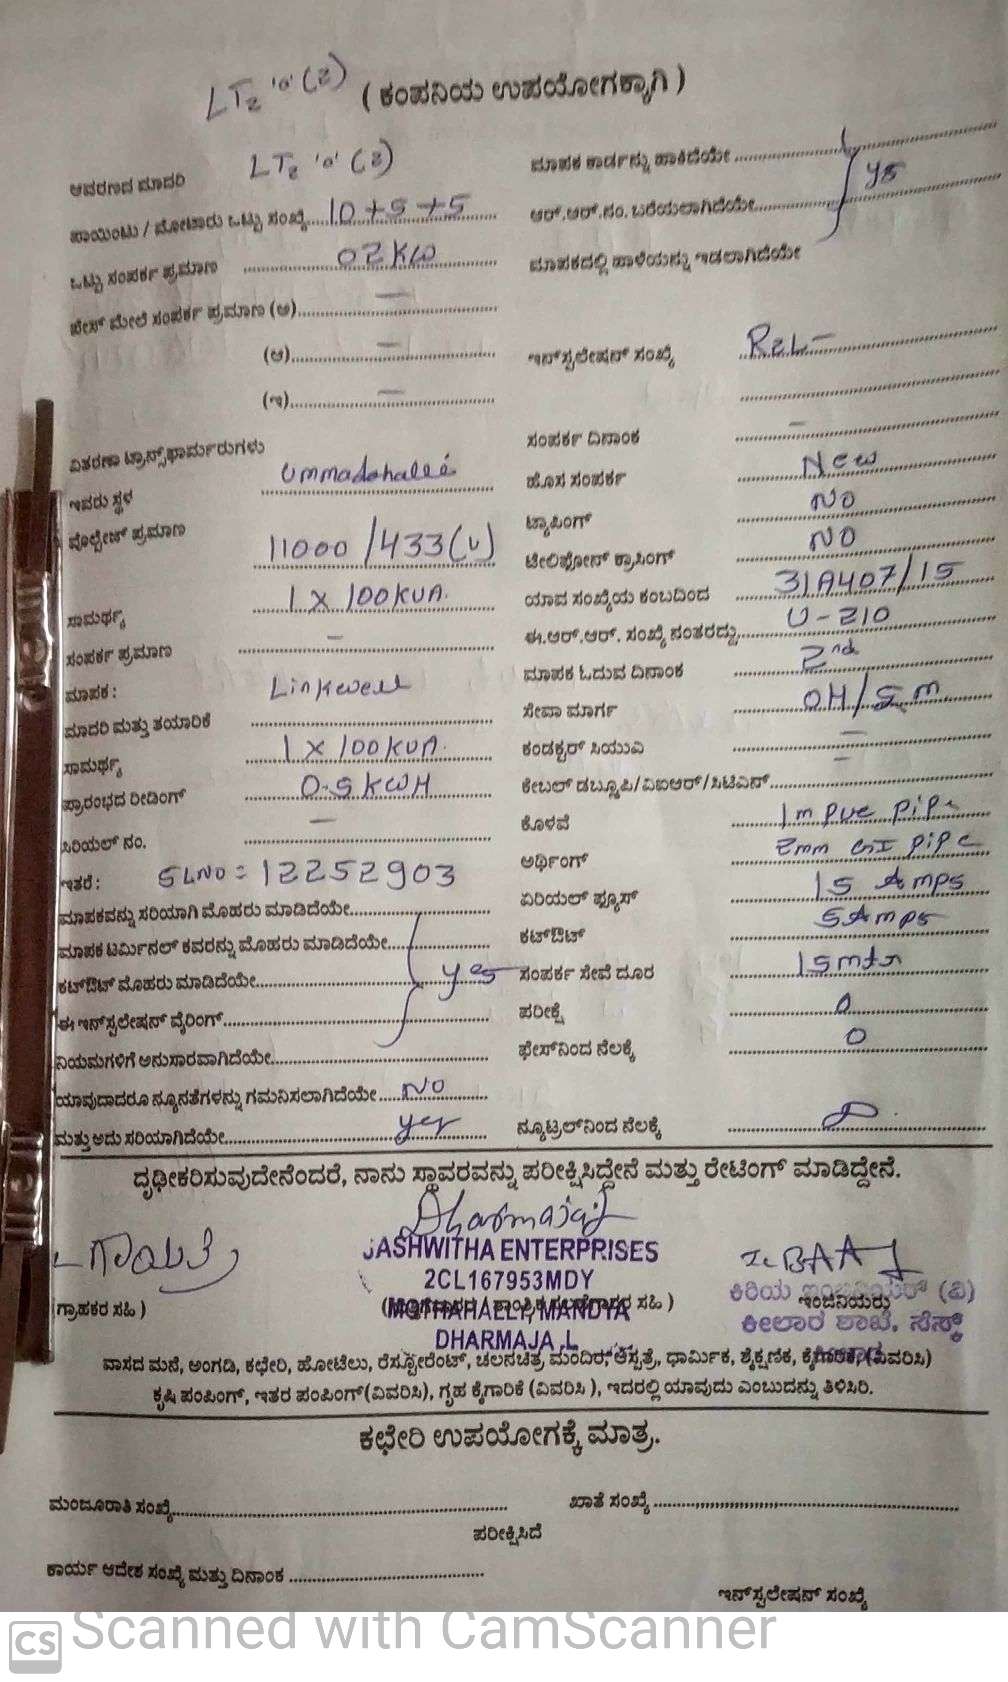 LT2 'a' (2) ( ಕಂಪನಿಯ ಉಪಯೋಗಕ್ಕಾಗಿ )
ಆವರಣದ ಮಾದರಿ LT2 'a' (2)
ಪಾಯಿಂಟು / ಮೋಟಾರು ಒಟ್ಟು ಸಂಖ್ಯೆ 10 + 5 + 5
ಒಟ್ಟು ಸಂಪರ್ಕ ಪ್ರಮಾಣ 02 KW
ಫೇಸ್ ಮೇಲೆ ಸಂಪರ್ಕ ಪ್ರಮಾಣ (ಅ) —
(ಆ) —
(ಇ) —
ವಿತರಣಾ ಟ್ರಾನ್ಸ್‌ಫಾರ್ಮರುಗಳು
ಇವರು ಸ್ಥಳ Ummadahalli
ವೋಲ್ಟೇಜ್ ಪ್ರಮಾಣ 11000 / 433 (V)
ಸಾಮರ್ಥ್ಯ 1 X 100 KVA.
ಸಂಪರ್ಕ ಪ್ರಮಾಣ —
ಮಾಪಕ : Linkwell
ಮಾದರಿ ಮತ್ತು ತಯಾರಿಕೆ
ಸಾಮರ್ಥ್ಯ 1 X 100 KVA.
ಪ್ರಾರಂಭದ ರೀಡಿಂಗ್ 0.5 KWH
ಸಿರಿಯಲ್ ನಂ. —
ಇತರೆ : SLNO = 12252903
ಮಾಪಕವನ್ನು ಸರಿಯಾಗಿ ಮೊಹರು ಮಾಡಿದೆಯೇ
ಮಾಪಕ ಟರ್ಮಿನಲ್ ಕವರನ್ನು ಮೊಹರು ಮಾಡಿದೆಯೇ
ಕಟ್‌ಔಟ್ ಮೊಹರು ಮಾಡಿದೆಯೇ yes
ಈ ಇನ್‌ಸ್ಟಲೇಷನ್ ವೈರಿಂಗ್
ನಿಯಮಗಳಿಗೆ ಅನುಸಾರವಾಗಿದೆಯೇ
ಯಾವುದಾದರೂ ನ್ಯೂನತೆಗಳನ್ನು ಗಮನಿಸಲಾಗಿದೆಯೇ NO
ಮತ್ತು ಅದು ಸರಿಯಾಗಿದೆಯೇ yes
ಮಾಪಕ ಕಾರ್ಡನ್ನು ಹಾಕಿದೆಯೇ
ಆರ್.ಆರ್.ನಂ. ಬರೆಯಲಾಗಿದೆಯೇ yes
ಮಾಪಕದಲ್ಲಿ ಹಾಳೆಯನ್ನು ಇಡಲಾಗಿದೆಯೇ
ಇನ್‌ಸ್ಟಲೇಷನ್ ಸಂಖ್ಯೆ
ಸಂಪರ್ಕ ದಿನಾಂಕ —
ಹೊಸ ಸಂಪರ್ಕ New
ಟ್ಯಾಪಿಂಗ್ NO
ಟೆಲಿಫೋನ್ ಕ್ರಾಸಿಂಗ್ NO
ಯಾವ ಸಂಖ್ಯೆಯ ಕಂಬದಿಂದ 31A407/15
ಈ.ಆರ್.ಆರ್. ಸಂಖ್ಯೆ ನಂತರದ್ದು U-210
ಮಾಪಕ ಓದುವ ದಿನಾಂಕ 2nd
ಸೇವಾ ಮಾರ್ಗ OH/S.M
ಕಂಡಕ್ಟರ್ ಸಿಯುವಿ —
ಕೇಬಲ್ ಡಬ್ಲ್ಯೂಪಿ/ವಿಐಆರ್/ಸಿಟಿಎಸ್ —
ಕೊಳವೆ 1m PVC Pipe
ಅರ್ಥಿಂಗ್ 2mm GI Pipe
ಏರಿಯಲ್ ಫ್ಯೂಸ್ 15 Amps
ಕಟ್‌ಔಟ್ 5 Amps
ಸಂಪರ್ಕ ಸೇವೆ ದೂರ 15 mtr
ಪರೀಕ್ಷೆ 0
ಫೇಸ್‌ನಿಂದ ನೆಲಕ್ಕೆ 0
ನ್ಯೂಟ್ರಲ್‌ನಿಂದ ನೆಲಕ್ಕೆ
ದೃಢೀಕರಿಸುವುದೇನೆಂದರೆ, ನಾನು ಸ್ಥಾವರವನ್ನು ಪರೀಕ್ಷಿಸಿದ್ದೇನೆ ಮತ್ತು ರೇಟಿಂಗ್ ಮಾಡಿದ್ದೇನೆ.
Dharmaja
JASHWITHA ENTERPRISES
2CL167953MDY
MOTHAHALLI, MANDYA
DHARMAJA .L
(ಗ್ರಾಹಕರ ಸಹಿ )
ಇಂಜಿನಿಯರು
ಕಿರಿಯ ಇಂಜಿನಿಯರ್ (ವಿ)
ಕೀಲಾರ ಶಾಖೆ, ಸೆಸ್ಕ್
ವಾಸದ ಮನೆ, ಅಂಗಡಿ, ಕಛೇರಿ, ಹೋಟೆಲು, ರೆಸ್ಟೋರೆಂಟ್, ಚಲನಚಿತ್ರ ಮಂದಿರ, ಆಸ್ಪತ್ರೆ, ಧಾರ್ಮಿಕ, ಶೈಕ್ಷಣಿಕ, ಕೈಗಾರಿಕೆ, (ವಿವರಿಸಿ)
ಕೃಷಿ ಪಂಪಿಂಗ್, ಇತರ ಪಂಪಿಂಗ್(ವಿವರಿಸಿ), ಗೃಹ ಕೈಗಾರಿಕೆ (ವಿವರಿಸಿ ), ಇದರಲ್ಲಿ ಯಾವುದು ಎಂಬುದನ್ನು ತಿಳಿಸಿರಿ.
ಕಛೇರಿ ಉಪಯೋಗಕ್ಕೆ ಮಾತ್ರ.
ಮಂಜೂರಾತಿ ಸಂಖ್ಯೆ ಖಾತೆ ಸಂಖ್ಯೆ
ಪರೀಕ್ಷಿಸಿದೆ
ಕಾರ್ಯ ಆದೇಶ ಸಂಖ್ಯೆ ಮತ್ತು ದಿನಾಂಕ
ಇನ್‌ಸ್ಟಲೇಷನ್ ಸಂಖ್ಯೆ
CS Scanned with CamScanner